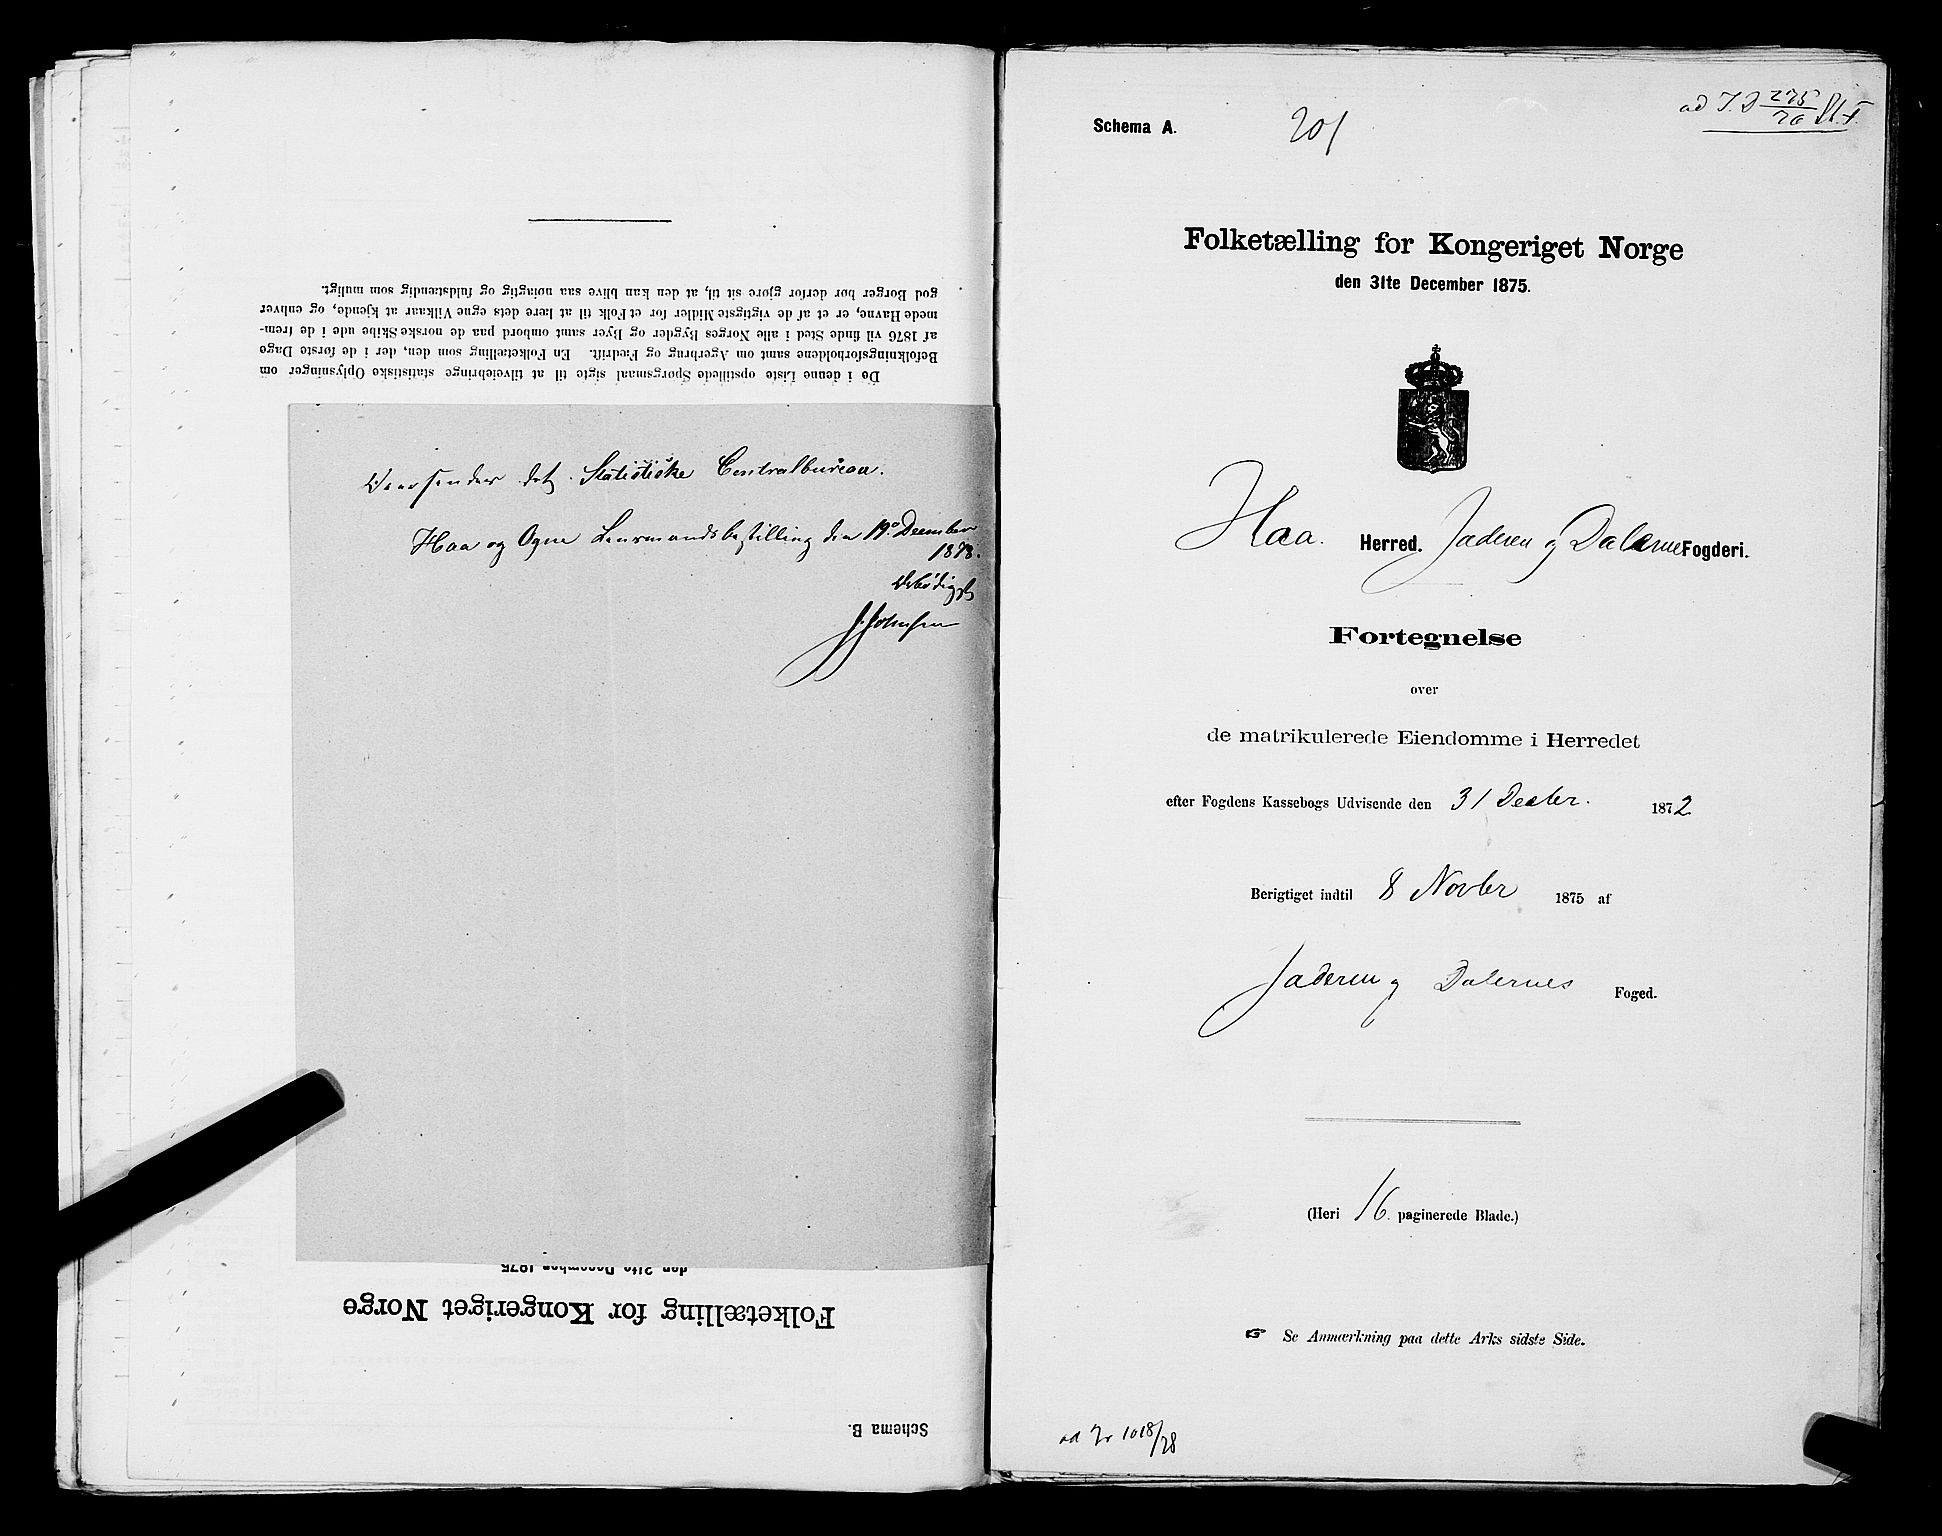 De i denne Liste opstillede Spørgsmaal sigte til at tilveiebringe statistiske Oplysninger om
Befolkningsforholdene samt om Agerbrug og Fædrift. En Folketælling som den, der i de første Dage
af 1876 vil finde Sted i alle Norges Bygder og Byer samt ombord paa de norske Skibe ude i de frem-
mede Havne, er et af de vigtigste Midler for et Folk til at lære dets egne Vilkaar at kjende, og enhver
god Borger bør derfor gjøre sit til, at den kan blive saa nøiagtig og fuldstændig som muligt.
det Statistiske Centralbureau.
Haa og Ogne Lensmandsbestilling den 19. December
1878.
Ærbødigst
J. Johnsen
den 31te December 1875
Folketælling for Kongeriget Norge
Schema B.
Schema A.
201
ad I. D 275/76 St. T.
Folketælling for Kongeriget Norge
den 31te December 1875.
Haa. Herred. Jæderen og Dalerne Fogderi.
Fortegnelse
over
de matrikulerede Eiendomme i Herredet
efter Fogdens Kassebogs Udvisende den 31 Decbr. 1872
Berigtiget indtil 8 Novbr 1875 af
Jæderen og Dalernes Foged.
(Heri 16. paginerede Blade.)
☞ Se Anmærkning paa dette Arks sidste Side.
ad Nr 1018/78